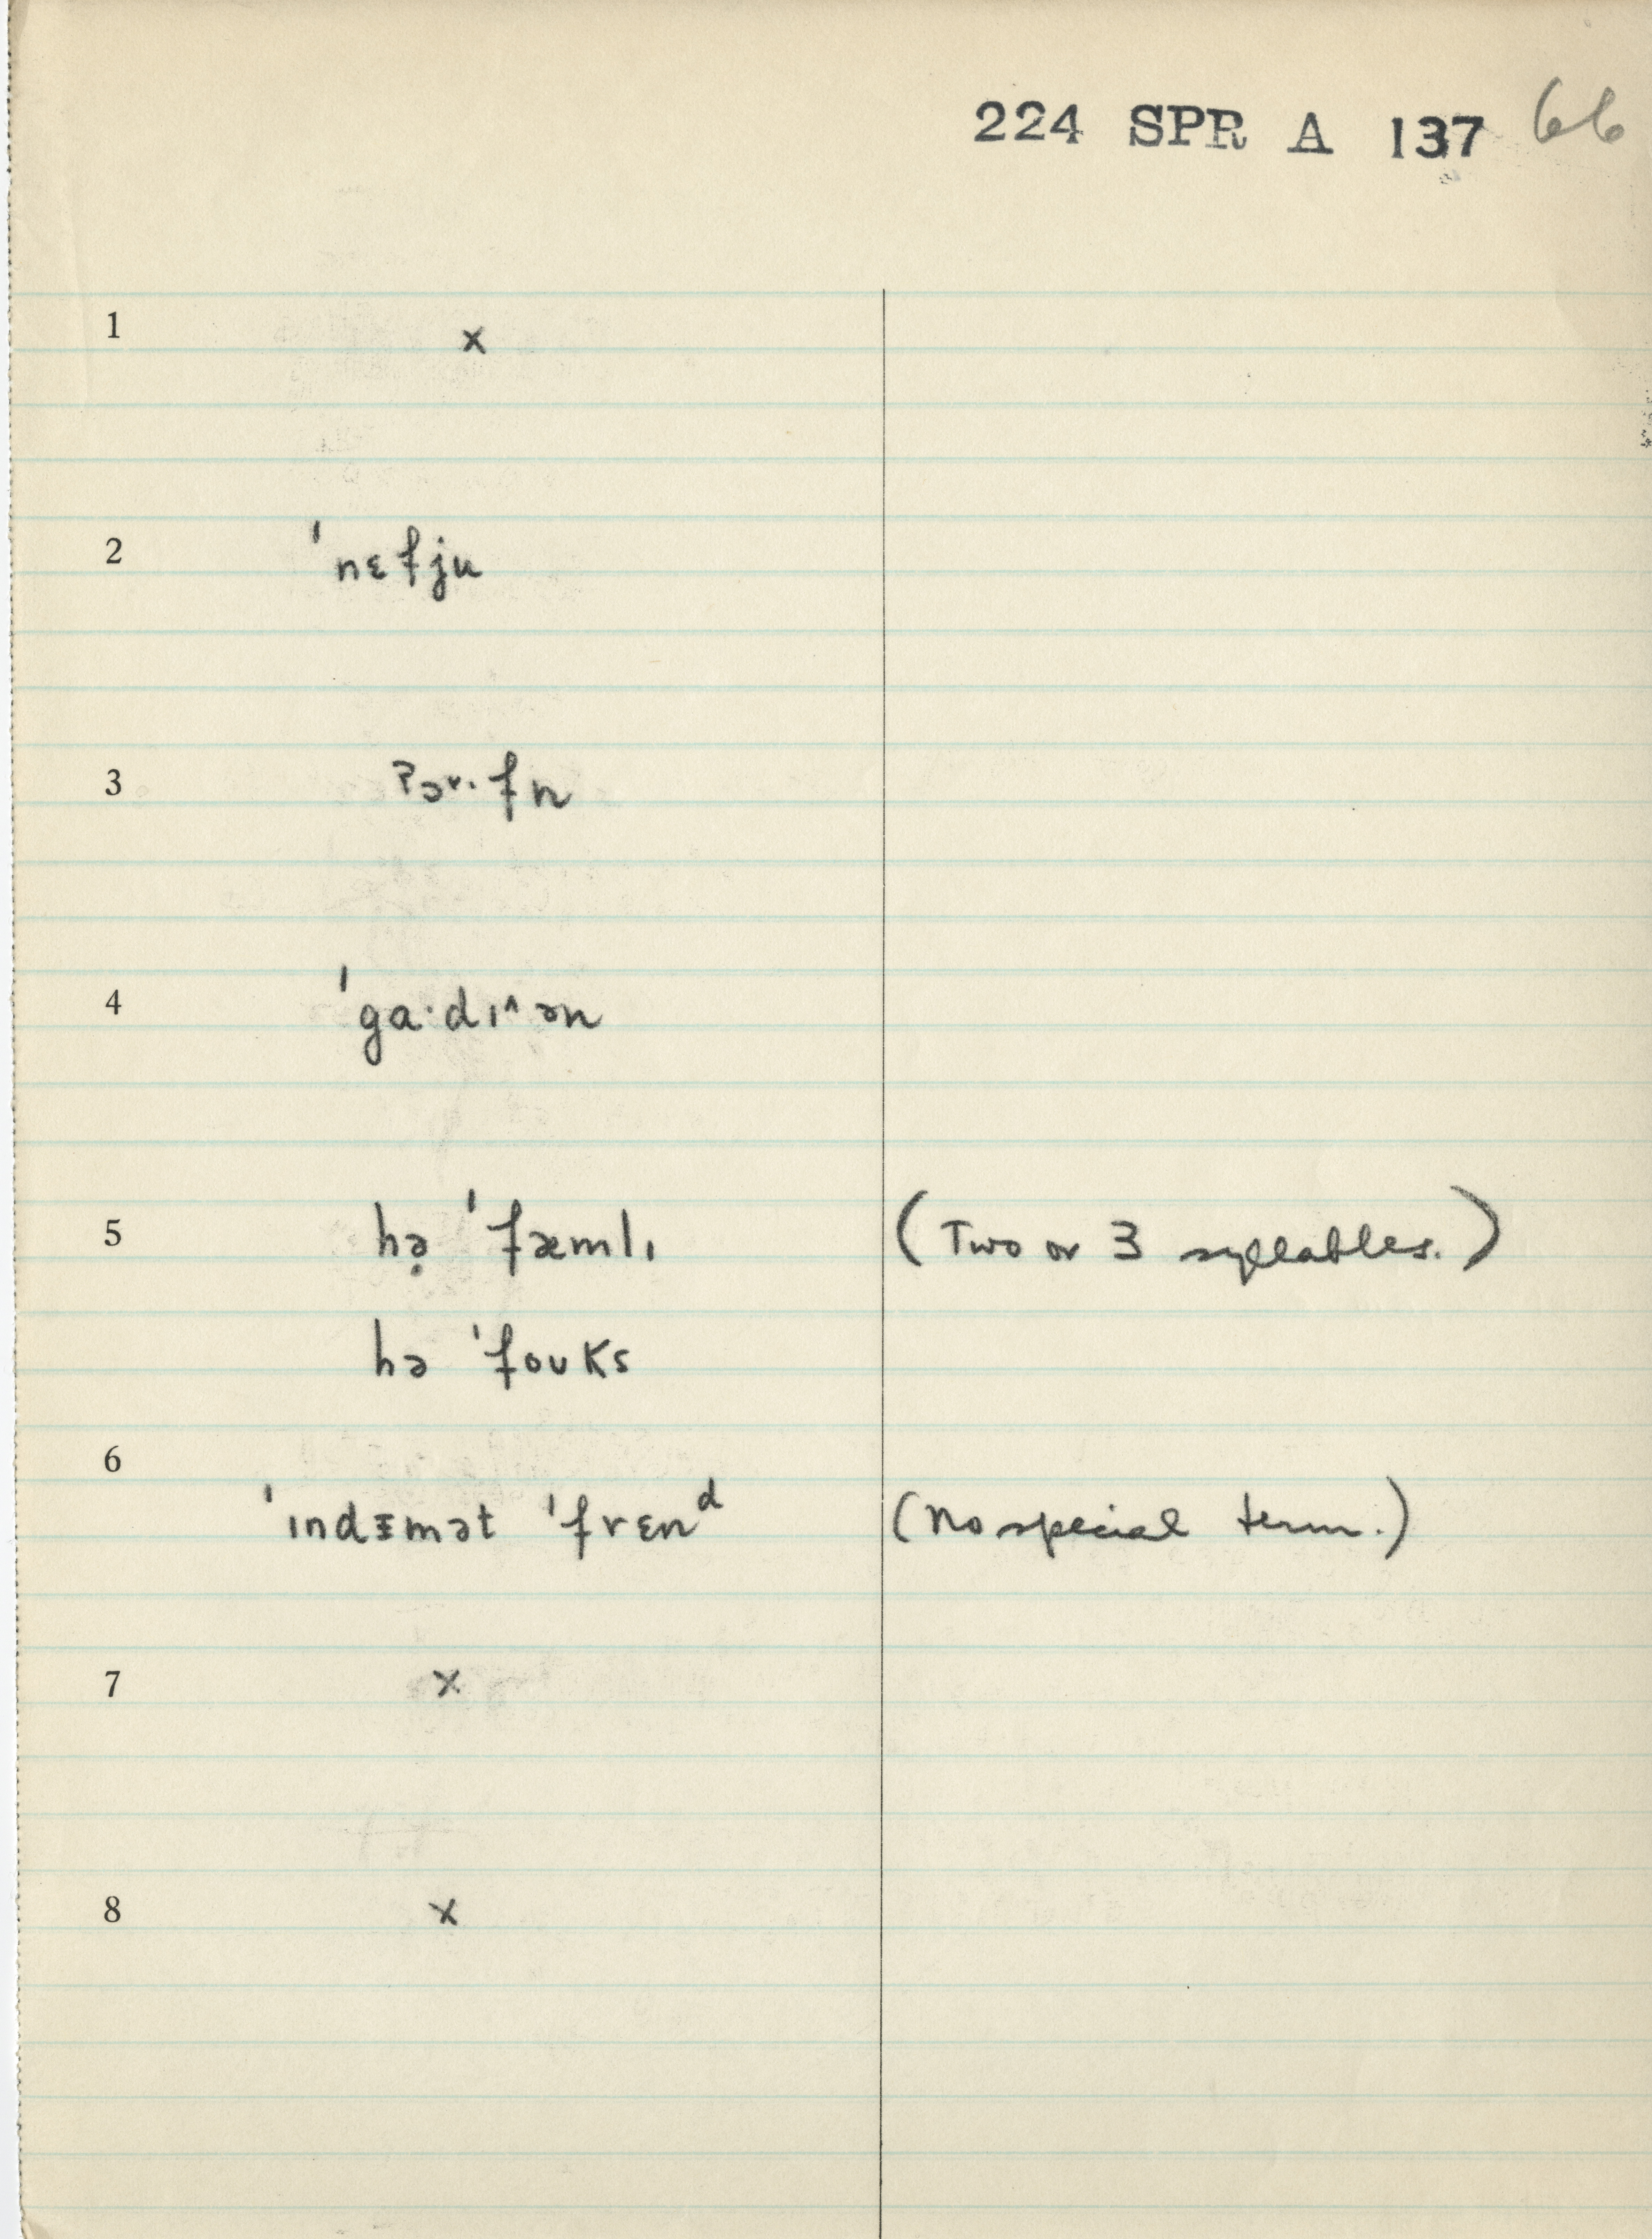 224 SPR A 137 66
1 x
2 ˈnɛfju
3 ʔɔ˅·fn
4 ˈga·dɪ^ən
5 hə̣ ˈfæmlɪ (Two or 3 syllables.)
hə ˈfoʊks
6 ˈɪndᵻmət ˈfrɛnᵈ (No special term.)
7 x
8 x